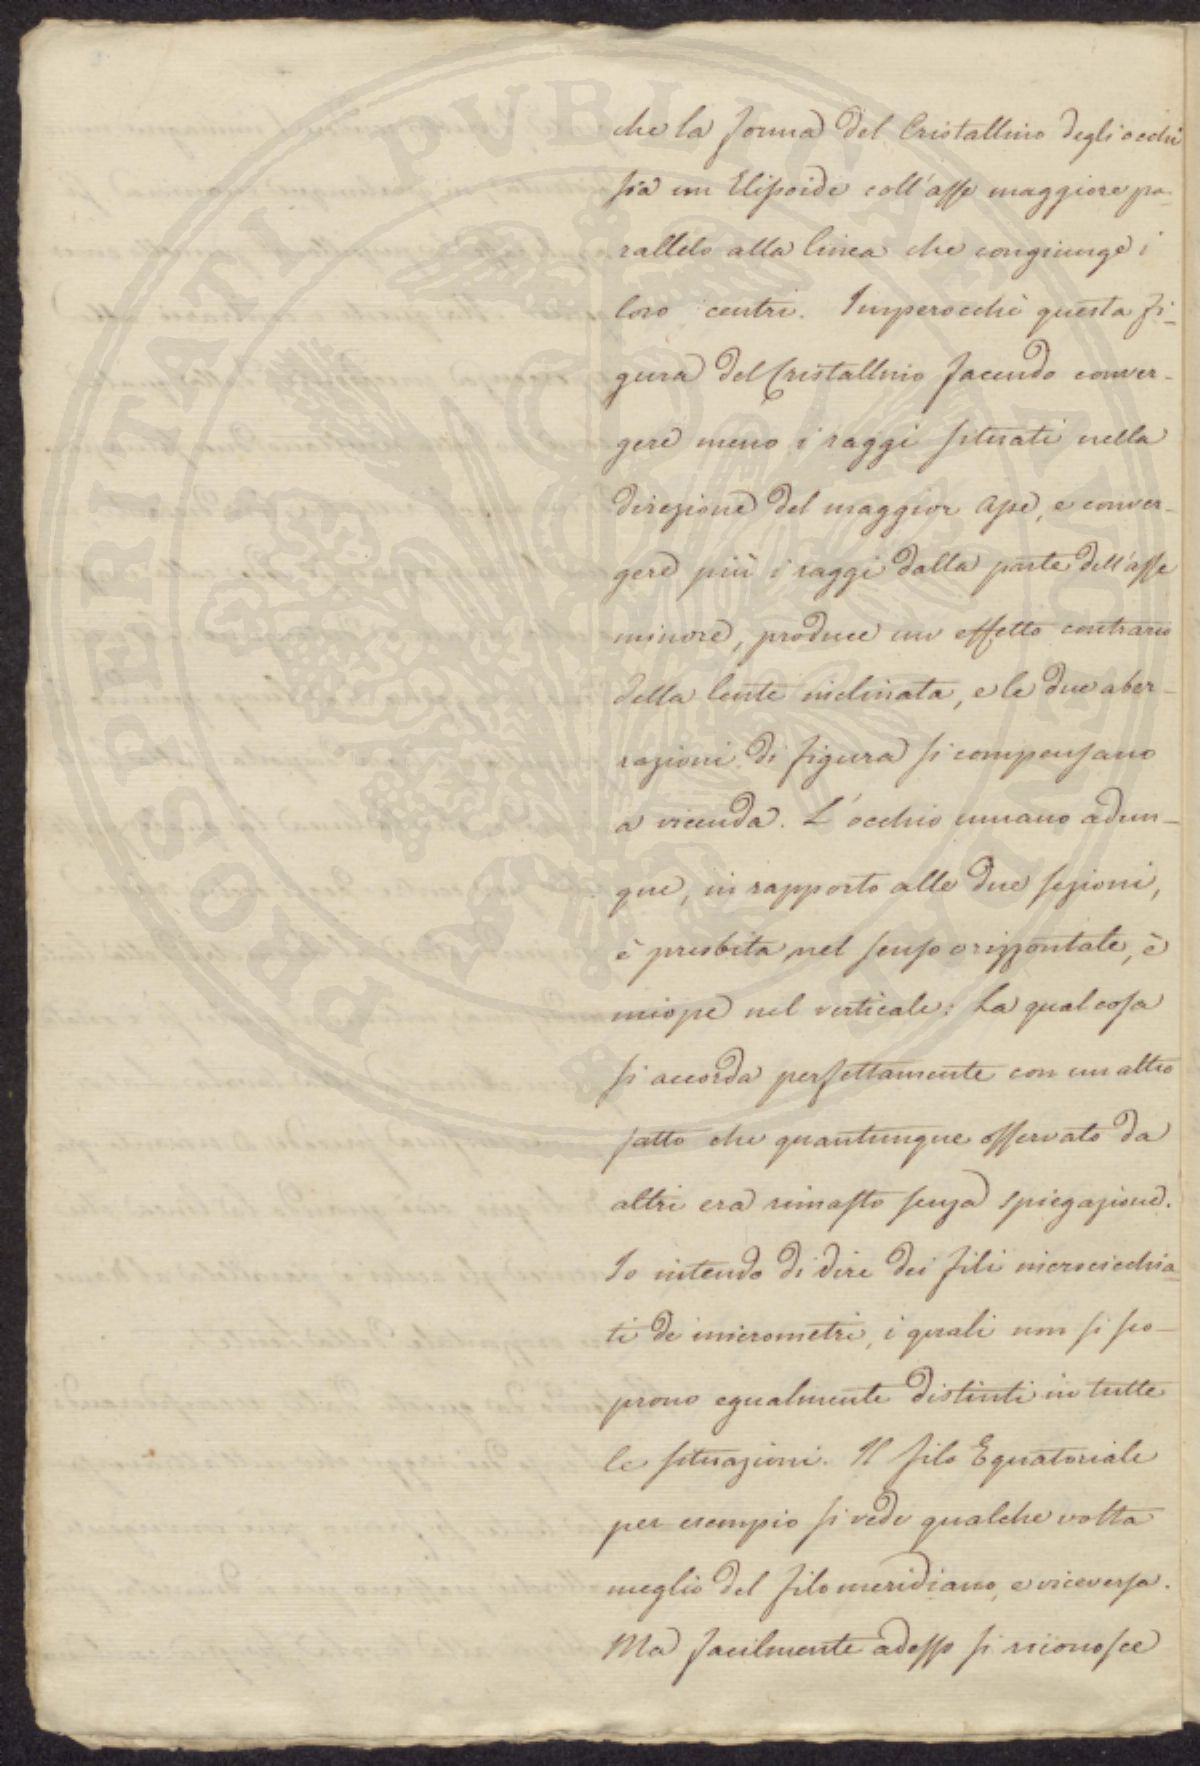 che la forma del Cristallino degli occhi
sia un Elissoide coll'asse maggiore pa-
rallelo alla linea che congiunge i
loro centri. Imperocchè questa fi-
gura del Cristallino facendo conver-
gere meno i raggi situati nella
direzione del maggior Asse, e conver-
gere più i raggi dalla parte dell'asse
minore, produce un effetto contrario
della lente inclinata, e le due aber-
razioni di figura si compensano
a vicenda. L'occhio umano adun-
que, in rapporto alle due sezioni,
è presbita nel senso orizzontale, è
miope nel verticale: La qual cosa
si accorda perfettamente con un altro
fatto che quantunque osservato da
altri era rimasto senza spiegazione.
Io intendo di dire dei fili incrocicchia-
ti de micrometri, i quali non si sco-
prono egualmente distinti in tutte
le situazioni. Il filo Equatoriale
per esempio si vede qualche volta
meglio del filo meridiano, e viceversa.
Ma facilmente adesso si riconosce
PROSPERITATI PUBLICAE AUGENDAE